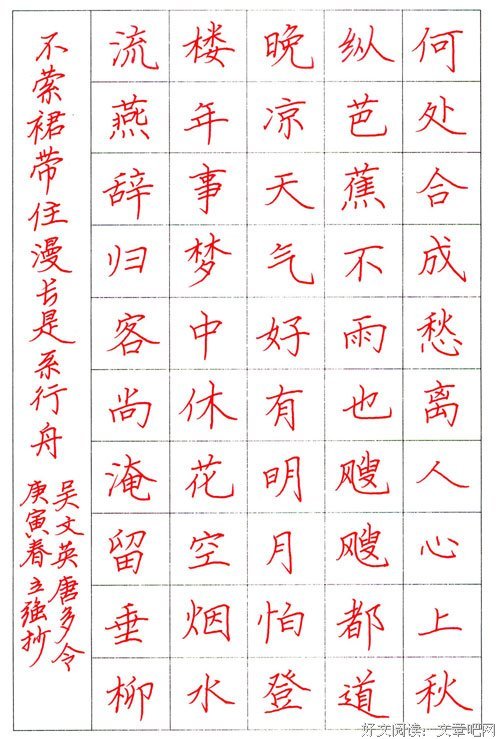 何处合成愁离人心上秋
纵芭蕉不雨也飕飕都道
晚凉天气好有明月怕登
楼年事梦中休花空烟水
流燕辞归客尚淹留垂柳
不萦裙带住漫长是系行舟
吴文英唐多令
庚寅春立强抄
好文阅读：文章吧网